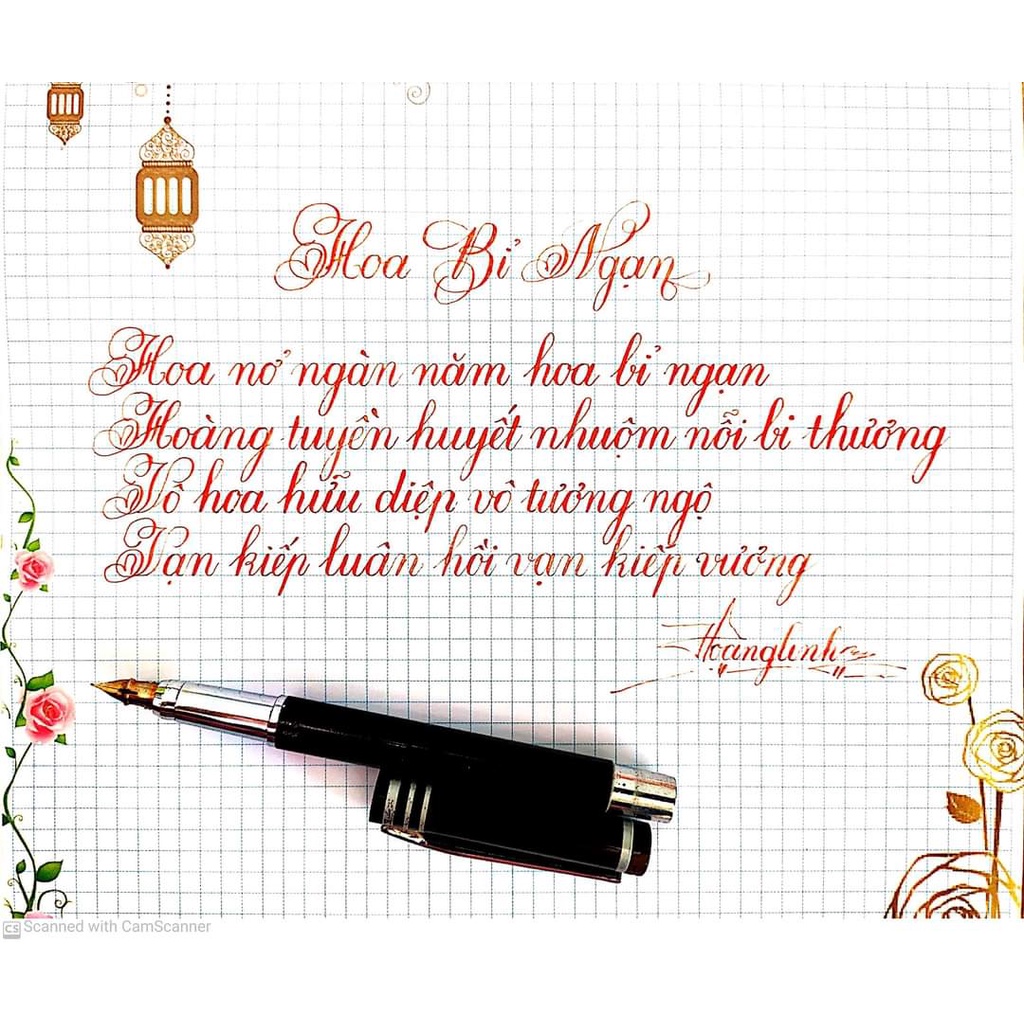 Hoa Bỉ Ngạn
Hoa nở ngàn năm hoa bỉ ngạn
Hoàng tuyền huyết nhuộm nỗi bi thương
Vô hoa hữu diệp vô tương ngộ
Vạn kiếp luân hồi vạn kiếp vương
Hoànglinh
CS Scanned with CamScanner